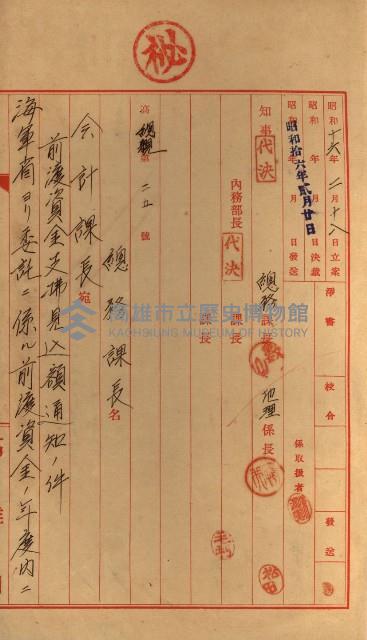 秘
昭和十六年二月十八日立案
昭和 年 月 日決裁
昭和拾六年貳月廿日
昭和 年 月 日發送
淨書
校合
發送
係取扱者
知事
代決
總務課長
地理係長
內務部長
代決
課長
課長
高
號
總務課長名
会計課長宛
前渡資金支拂見込額通知ノ件
海軍省ヨリ委託ニ係ル前渡資金ノ年度內ニ
高雄市立歷史博物館
KAOHSIUNG MUSEUM OF HISTORY